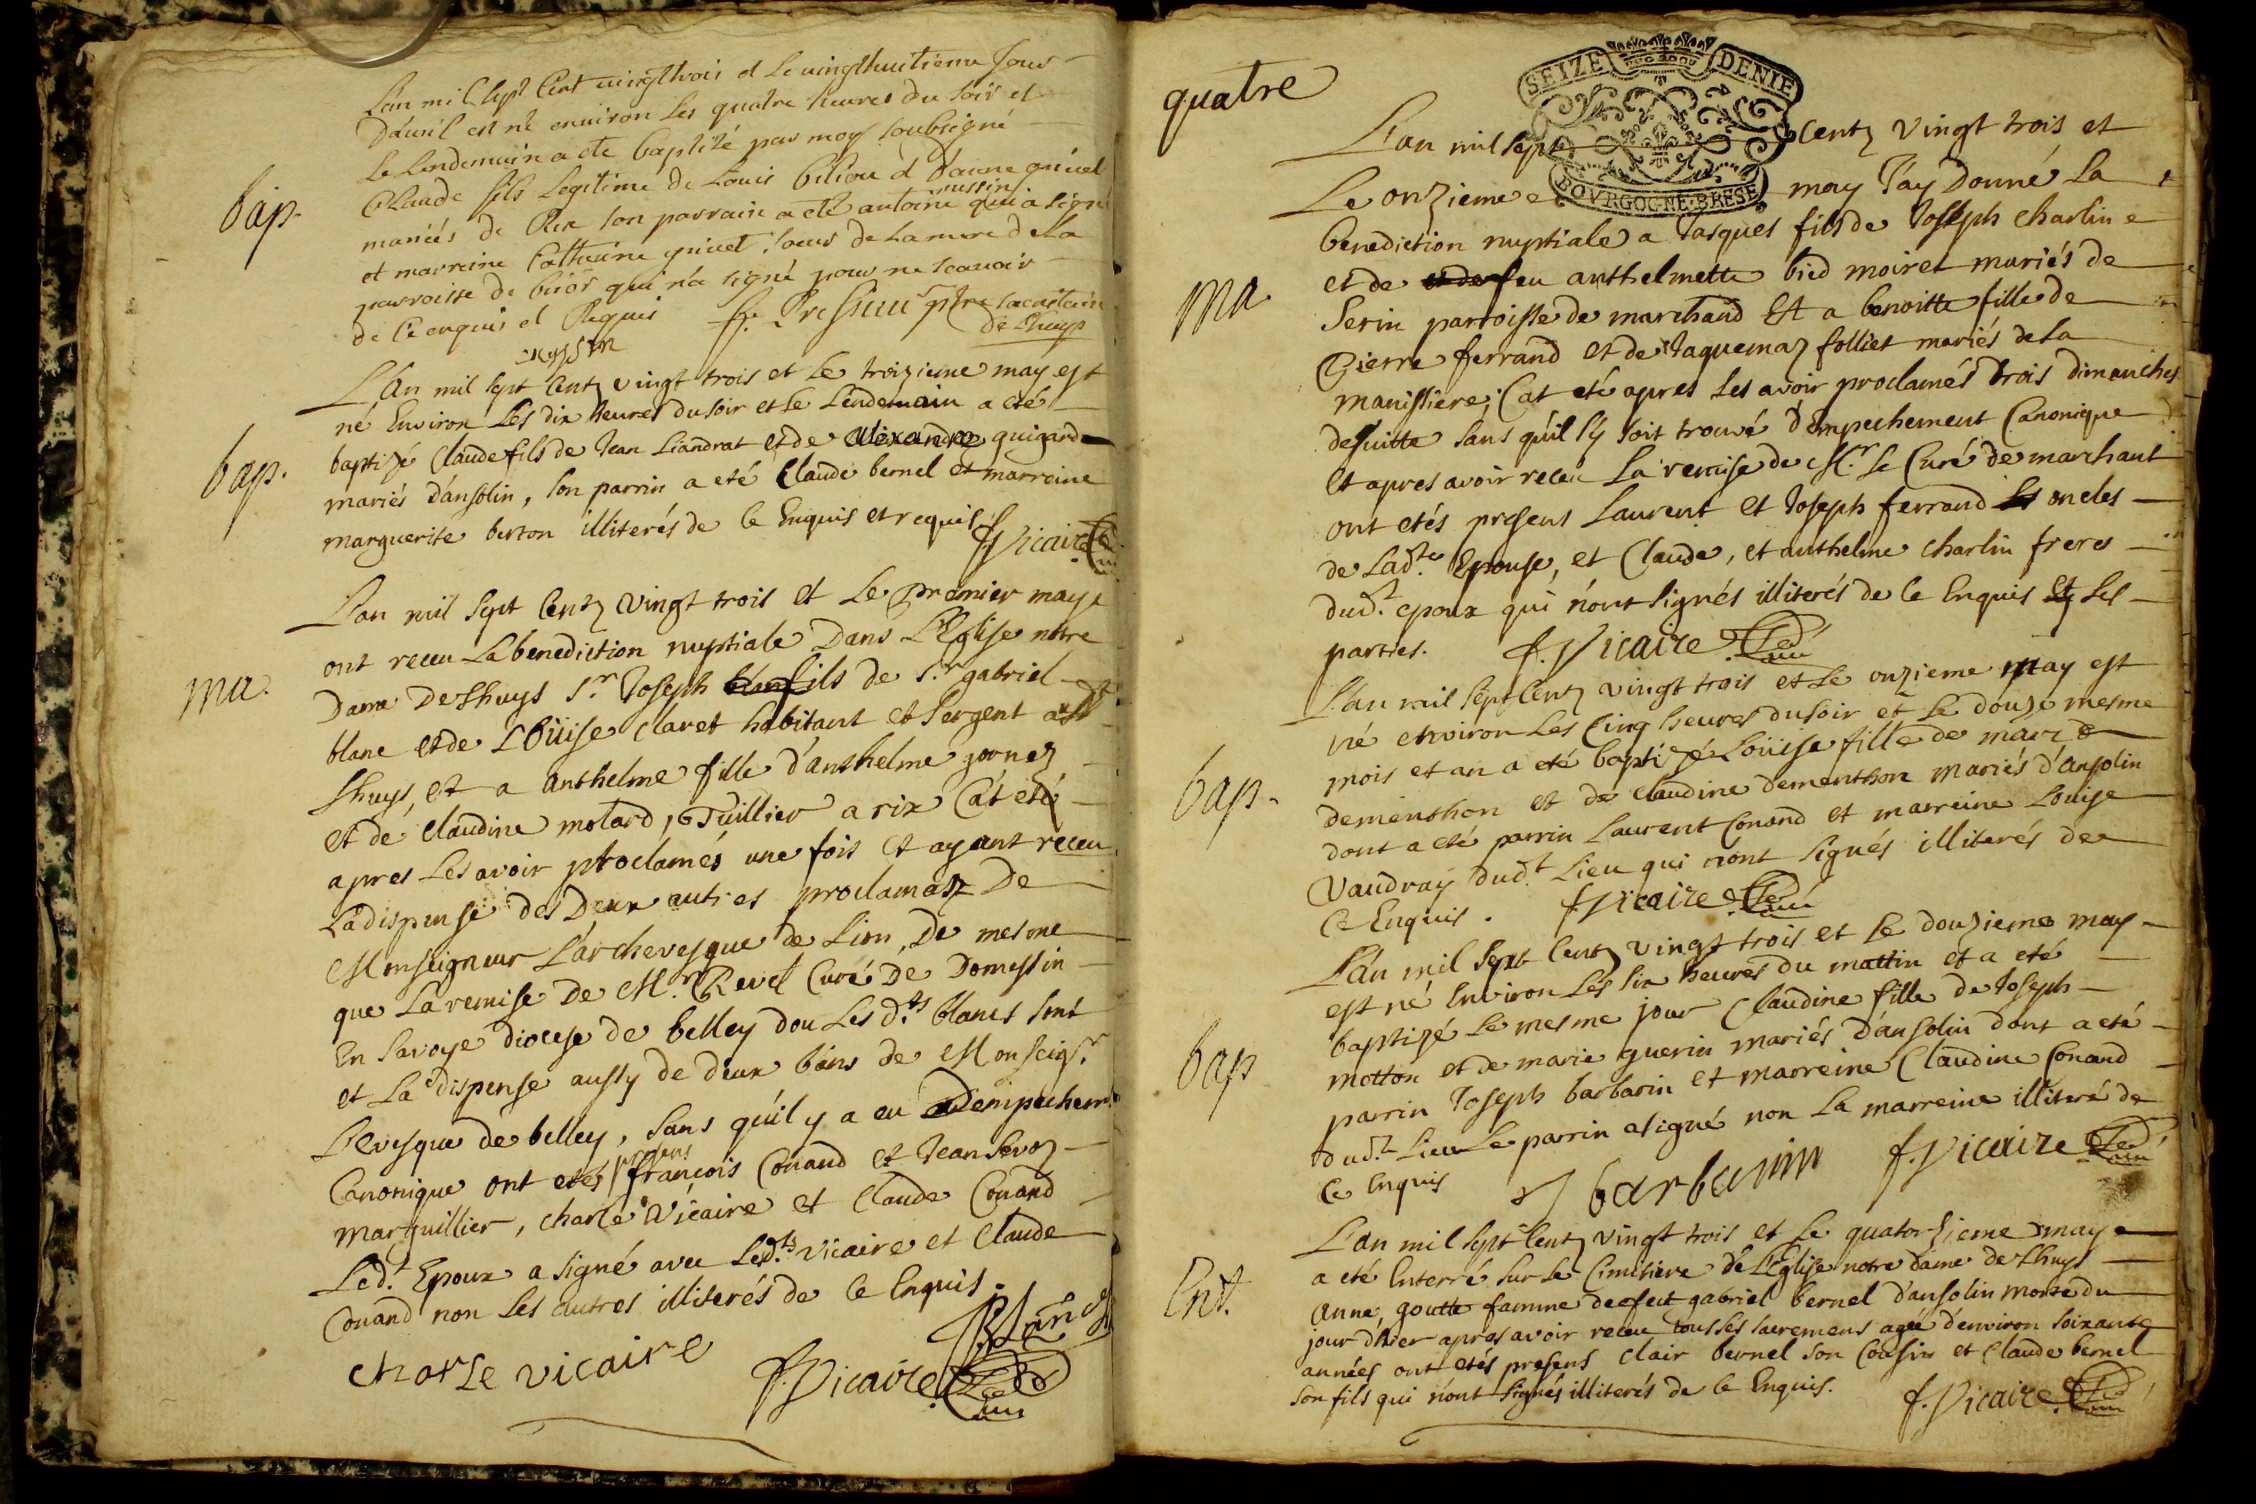 L'an mil sept Cent vingt trois et le vingt huitieme Jour
Davril est né environ les quatre heures du soir et
le lendemain a été baptizé par moy soubsigné
bap.
Claude fils legitime de Louis et D'anne
mariés de Rix son parrain a eté antoine qui a signé
et marreine Catherine soeur de la mere de la
parroisse de qui n'a signé pour ne scavoir
de Ce enquis et Requis fr. ptre sacristain
de Lhuys
L'An mil sept Centz vingt trois et le treizieme may est
né Environ Les dix heures du soir et le Lendemain a eté
bap.
baptizé Claude fils de Jean Liandrat et de quinard
mariés d'ansolin, son parrin a eté Claude bernel et marreine
marguerite berton illiterés de Ce Enquis et requis
f. Vicaire
L'an mil sept Centz vingt trois et Le premier may
ont receu La benediction nuptiale Dans L'Eglise nôtre
ma.
Dame De Lhuys S.r Joseph fils de S.r gabriel
blanc et de Loüise Claret habitant et sergent
Lhuys, et a anthelme fille d'anthelme
et de Claudine molard, a rix C'at eté
apres Les avoir proclamés une fois et ayant receu
La dispense des Deux autres De
Monseigneur L'archevesque de Lion, De mesme
que La remise De M.r Revel Curé De Domessin
En Savoye diocese de belley dou Les d.ts blancs sont
et La dispense aussy de deux bans de Monseig.r
L'Evesque de belley, sans qu'il y a eu D'empechem.t
Canonique ont etés presens françois Conand et Jean
marguillier, charle Vicaire et Claude Conand
Led.t Epoux a signé avec Lesd.ts Vicaire et Claude
Conand non Les autres illiterés de Ce Enquis.
Blanc
charle vicaire f. Vicaire
quatre
SEIZE DENIE
BOVRGOGNE·BRESE
L'an mil sept Centz Vingt trois et
Le onzieme may J'ay Donné La
benediction nuptiale a Jasques fils de Joseph charlin
ma
et de feu anthelmette bied moiret mariés de
Serin parroisse de marchand Et a benoitte fille de
Pierre ferrand et de Jaquemaz folliet mariés de La
manissiere; C'at eté apres Les avoir proclamés trois dimanches
desuitte sans qu'il s'y soit trouvé d'empechement Canonique
Et apres avoir receu La remise de M.r Le Curé de marchant
ont etés presens Laurent et Joseph ferrand oncles
de Lad.te Epouse, et Claude, et anthelme charlin freres
dud.t epoux qui n'ont signés illiterés de Ce Enquis Les
parties. f. Vicaire
L'an mil sept Centz vingt trois et Le onzieme may est
né environ Les Cinq heures du soir et Le douze mesme
bap.
mois et an a eté baptizé Loüise fille de marc
dementhon et de Claudine dementhon mariés d'ansolin
dont a eté parrin Laurent Conand et marreine Louise
Vaudray dud.t Lieu qui n'ont signés illiterés de
Ce Enquis. f. Vicaire
L'an mil sept Centz vingt trois et Le douzieme may
est né Environ Les six heures du mattin et a eté
bap
baptizé Le mesme jour Claudine fille de Joseph
motton et de marie guerin mariés d'ansolin dont a eté
parrin Joseph barbarin et marreine Claudine Conand
dud.t Lieu Le parrin a signé non La marreine illiteré de
Ce Enquis J barbarin f. Vicaire
L'an mil sept Centz vingt trois et Le quatorzieme may
Ent.
a eté Enterré sur Le Cimitiere de L'Eglise notre dame de Lhuys
anne goutte famme de feu gabriel bernel d'ansolin morte du
jour d'hier apres avoir receu tous Les sacremens agée d'environ soixante
années ont etés presens Clair bernel son Cousin et Claude bernel
son fils qui n'ont signés illiterés de Ce Enquis. f. Vicaire